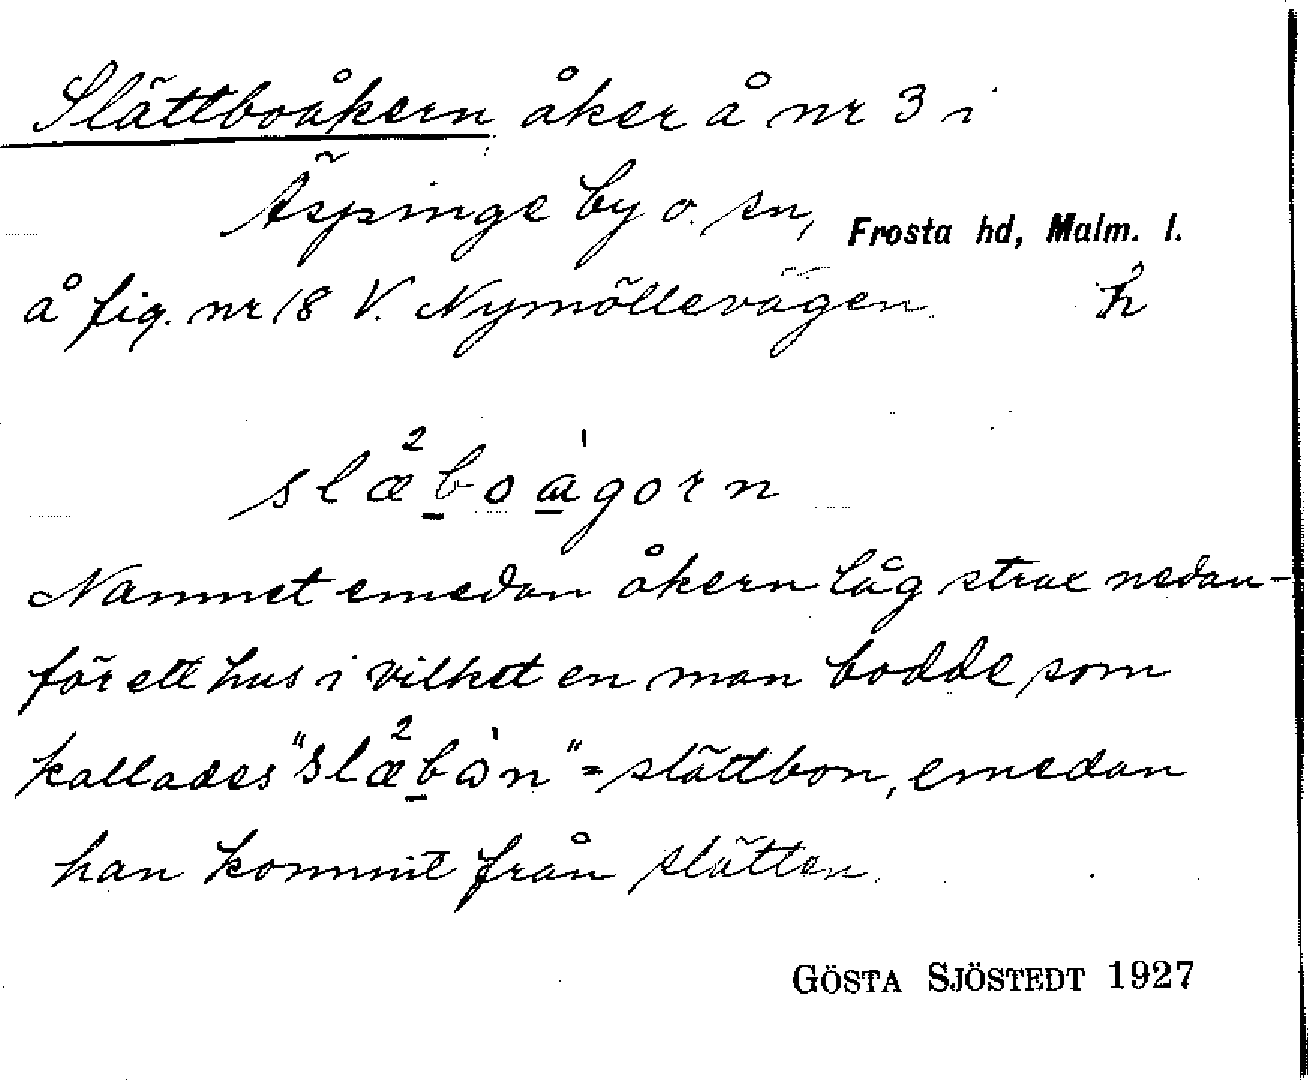 Slättboåkern åker å nr 3 i
Äspinge by o. sn, Frosta hd, Malm. l.
å fig. nr 18 V. Nymöllevägen. h
slæ²boàgorn
Namnet emedan åkern låg strax nedan-
för ett hus i vilket en man bodde som
kallades "slæ²bòn" = slättbon, emedan
han kommit från slätten.
GÖSTA SJÖSTEDT 1927